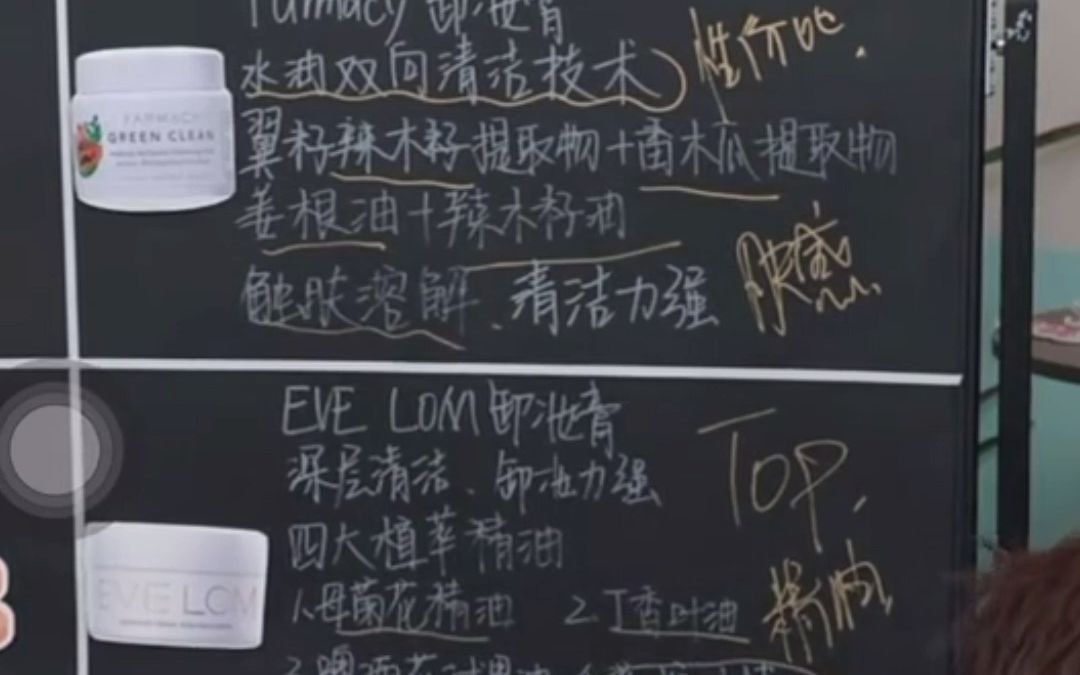 Farmacy 卸妆膏
水油双向清洁技术
性价比
FARMACY
GREEN CLEAN
翼籽辣木籽提取物+番木瓜提取物
姜根油+辣木籽油
触肤溶解、清洁力强
肤感
EVE LOM 卸妆膏
深层清洁、卸妆力强
TOP
四大植萃精油
EVE LOM
1.母菊花精油 2.丁香叶油
精油